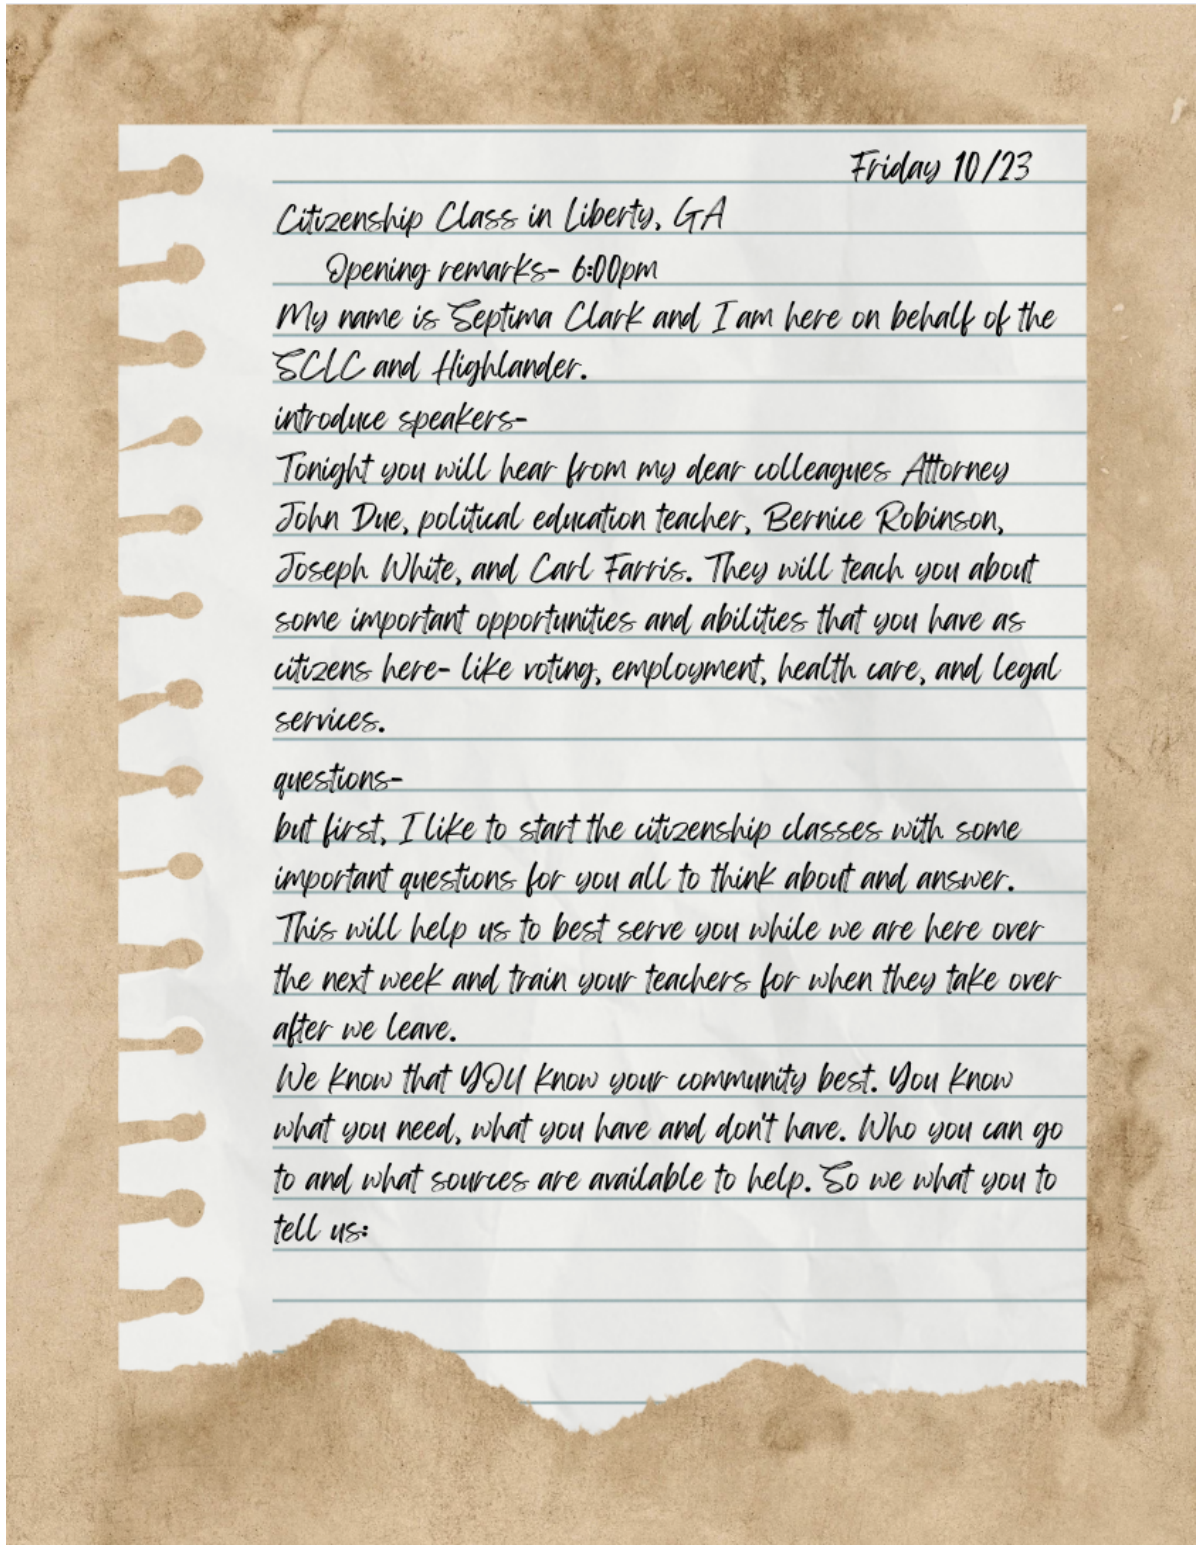 Friday 10/23
Citizenship Class in Liberty, GA
Opening remarks- 6:00pm
My name is Septima Clark and I am here on behalf of the
SCLC and Highlander.
introduce speakers-
Tonight you will hear from my dear colleagues Attorney
John Due, political education teacher, Bernice Robinson,
Joseph White, and Carl Farris. They will teach you about
some important opportunities and abilities that you have as
citizens here- like voting, employment, health care, and legal
services.
questions-
but first, I like to start the citizenship classes with some
important questions for you all to think about and answer.
This will help us to best serve you while we are here over
the next week and train your teachers for when they take over
after we leave.
We know that YOU know your community best. You know
what you need, what you have and don't have. Who you can go
to and what sources are available to help. So we what you to
tell us: